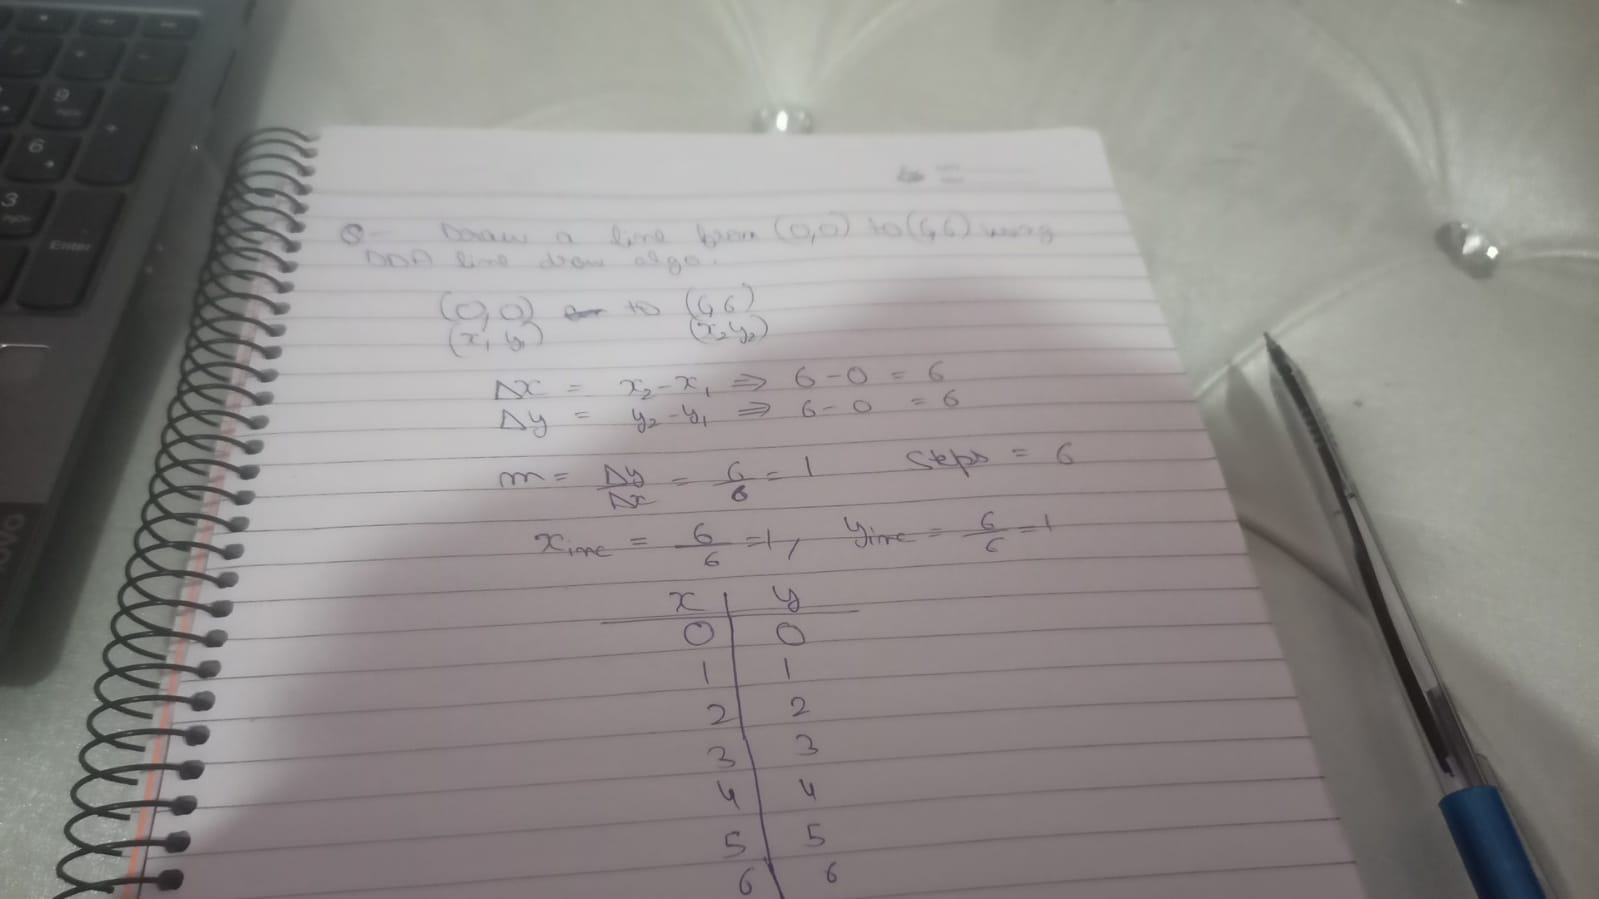 Q- Draw a line from (0,0) to (6,6) using
DDA line draw algo.
(0,0) to (6,6)
(x₁ y₁) (x₂ y₂)
Δx = x₂-x₁ ⇒ 6-0 = 6
Δy = y₂-y₁ ⇒ 6-0 = 6
m = Δy/Δx = 6/6 = 1 Steps = 6
xinc = 6/6 = 1, yinc = 6/6 = 1
x y
0 0
1 1
2 2
3 3
4 4
5 5
6 6
9
6
3
Enter